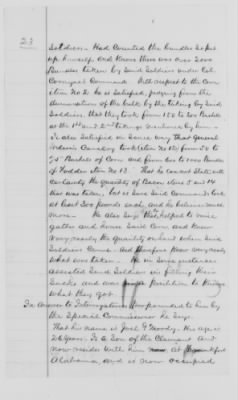 23
Soldiers. Had Counted the bundles so put
up himself, and Knows there was over 2000
Bundles taken by Said Soldiers under Col.
Command. With respect to the Corn
item No 2 he is satisfied, judging from the
diminution of the bulk by the taking by Said
Soldiers, that they took from 150 to 200 bushels
at the 1st and 2nd takings mentioned by him.
Is also Satisfied in Same way that General
Wilson's Cavalry took (item No 12) from 50 to
75 Bushels of Corn and from 800 to 1000 Bundles
of Fodder item No 13. That he cannot State with
certainty the quantity of Bacon items 5 and 14
that was taken, but is sure Said Commands took
at least 300 pounds each, and he believes much
more. He also Says that he helped to raise
gather and house Said Corn and Knew
very nearly the quantity on hand when Said
Soldiers Came and therefore Knew very nearly
what was taken. He in Some instances
assisted Said Soldiers in filling their
Sacks and was in a position to Know
what they got.
In Answer to Interrogatories propounded to him by
the Special Commissioner he Says.
That his name is Joel G Moody. His age is
26 years. Is a Son of the Claimant and
now resides with him at Frankfort
Alabama, and is now occupied